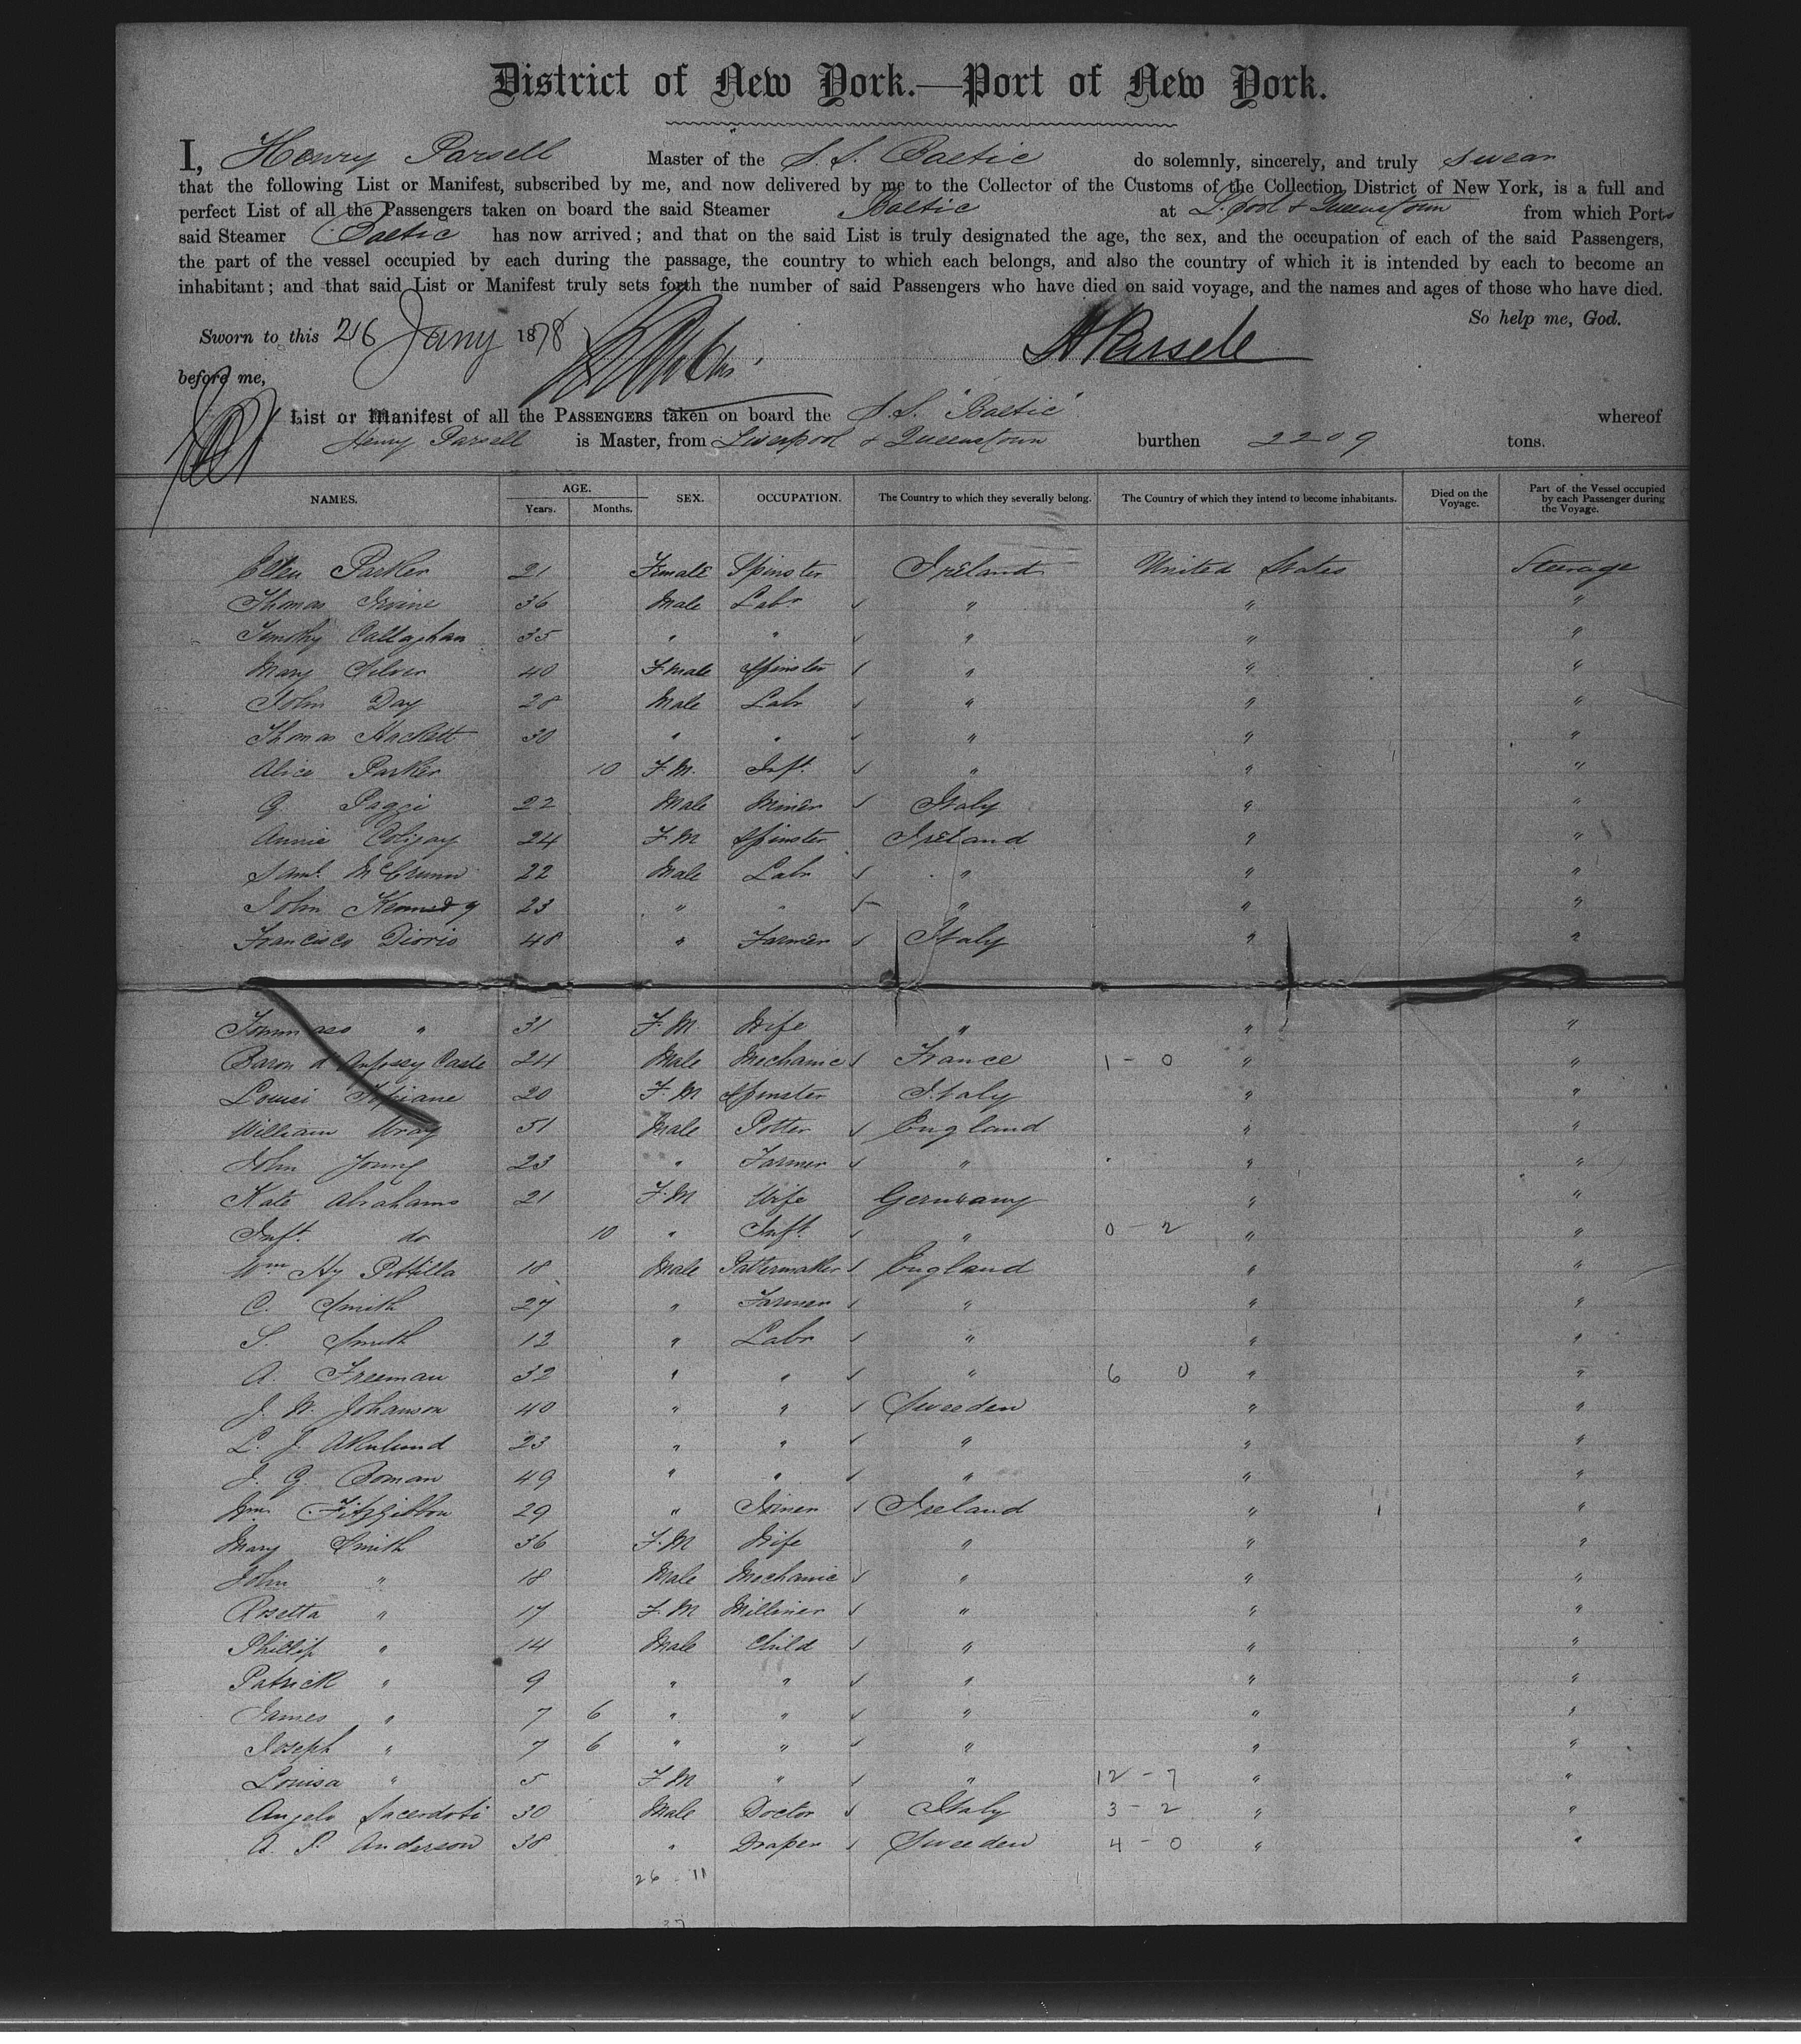 District of New York.—Port of New York.
I, Henry Parsell Master of the S.S. Baltic do solemnly, sincerely, and truly swear
that the following List or Manifest, subscribed by me, and now delivered by me to the Collector of the Customs of the Collection District of New York, is a full and
perfect List of all the Passengers taken on board the said Steamer Baltic at L.pool & Queenstown from which Ports
said Steamer Baltic has now arrived; and that on the said List is truly designated the age, the sex, and the occupation of each of the said Passengers,
the part of the vessel occupied by each during the passage, the country to which each belongs, and also the country of which it is intended by each to become an
inhabitant; and that said List or Manifest truly sets forth the number of said Passengers who have died on said voyage, and the names and ages of those who have died.
So help me, God.
Sworn to this 26 Jany 1878 H Parsell
before me,
List or Manifest of all the PASSENGERS taken on board the S.S. "Baltic" whereof
Henry Parsell is Master, from Liverpool & Queenstown burthen 2209 tons.
NAMES. AGE. Years. Months. SEX. OCCUPATION. The Country to which they severally belong. The Country of which they intend to become inhabitants. Died on the Voyage. Part of the Vessel occupied by each Passenger during the Voyage.
Ellen Parker 21 Female Spinster Ireland United States Steerage
Thomas Irvine 36 Male Labr " " "
Timothy Callaghan 35 " " " " "
Mary Silver 40 Female Spinster " " "
John Day 28 Male Labr " " "
Thomas Hackett 30 " " " " "
Alice Parker 10 F.M. Inft. " " "
G. Paggi 22 Male Miner Italy " "
Annie Coligay 24 F.M Spinster Ireland " "
Saml. McCrumn 22 Male Labr " " "
John Kennedy 23 " " " " "
Francisco Diorio 48 " Farmer Italy " "
Tommaso " 31 F.M Wife " " "
Baron d' Caste 24 Male Mechanic France 1 - 0 " "
Louisi 20 F.M Spinster Italy " "
William Wray 51 Male Potter England " "
John Young 23 " Farmer " " "
Kate Abrahams 21 F.M Wife Germany " "
Inft. do 10 " Inft. " 0 - 2 " "
Wm Hy Pittilla 18 Male Patternmaker England " "
C. Smith 27 " Farmer " " "
S. Smith 12 " Labr " " "
A. Freeman 32 " " " 6 0 " "
J. W. Johanson 40 " " Sweeden " "
L. J. Akulund 23 " " " " "
J. G. Boman 49 " " " " "
Wm. Fitzgibbon 29 " Joiner Ireland " 1 "
Mary Smith 36 F.M Wife " " "
John " 18 Male Mechanic " " "
Rosetta " 17 F.M Milliner " " "
Phillip " 14 Male Child " " "
Patrick " 9 " " " " "
James " 7 6 " " " " "
Joseph " 7 6 " " " " "
Louisa " 5 F.M " " 12 - 7 " "
Angelo Sacerdoti 30 Male Doctor Italy 3 - 2 " "
A. P. Anderson 38 " Draper Sweeden 4 - 0 " "
26 - 11
37